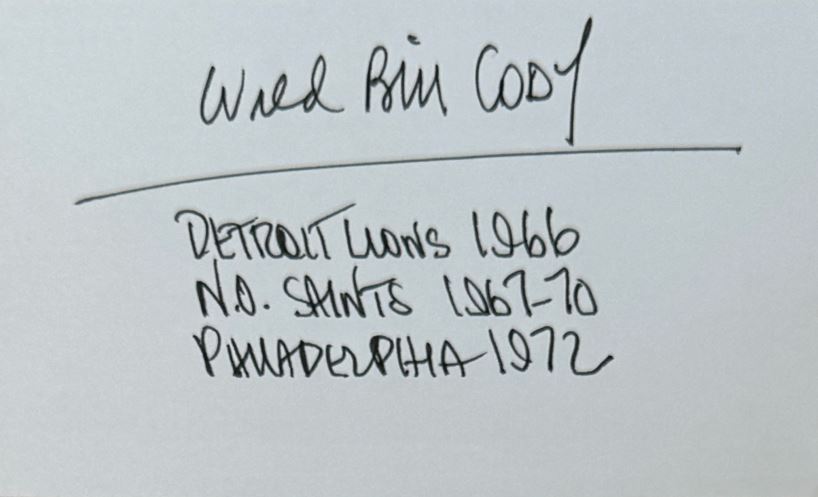 Wild Bill CODY
DETROIT LIONS 1966
N.O. SAINTS 1967-70
PHILADELPHIA 1972